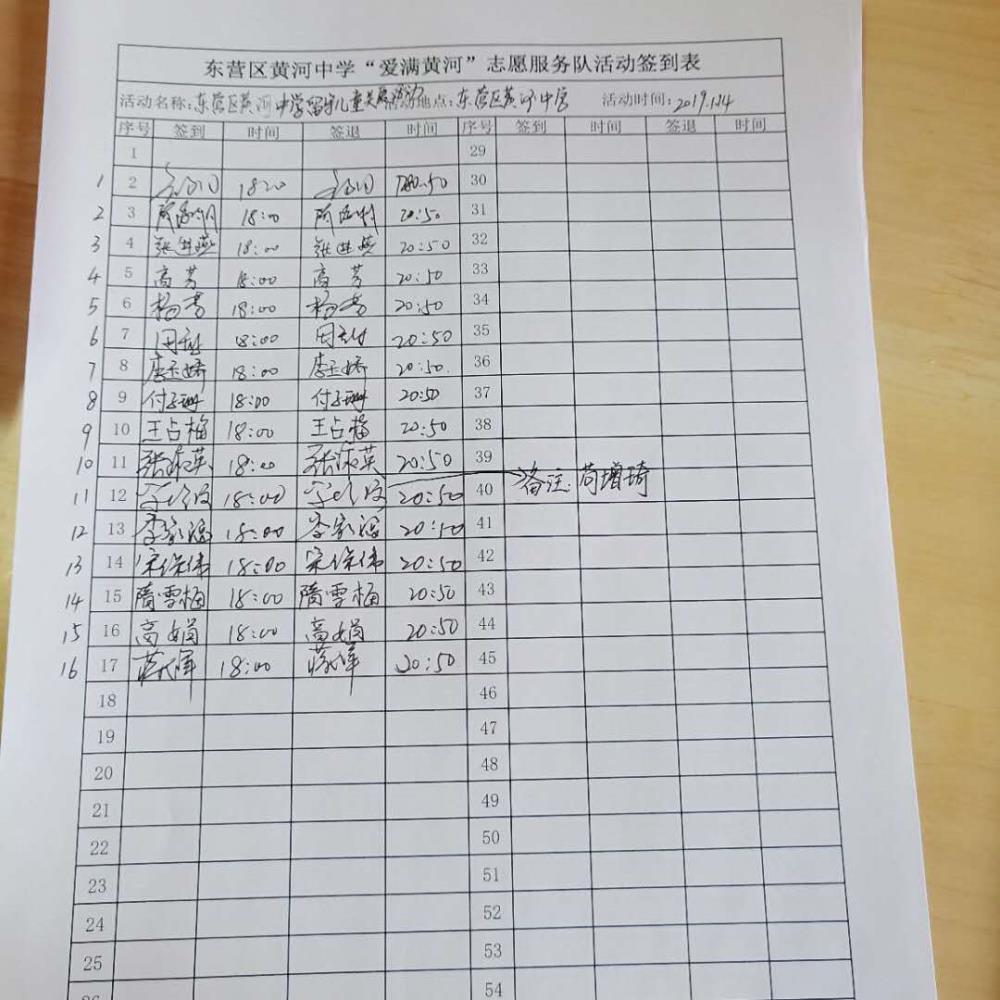 东营区黄河中学“爱满黄河”志愿服务队活动签到表
活动名称：东营区黄河中学留守儿童关爱活动 地点：东营区黄河中学 活动时间：2019.1.14
序号 签到 时间 签退 时间 序号 签到 时间 签退 时间
1 29
1 2 18:20 20:50 30
2 3 18:00 20:50 31
3 4 张进燕 18:00 张进燕 20:50 32
4 5 高芳 18:00 高芳 20:50 33
5 6 杨芳 18:00 杨芳 20:50 34
6 7 18:00 20:50 35
7 8 唐玉娇 18:00 唐玉娇 20:50. 36
8 9 付子珊 18:00 付子珊 20:50 37
9 10 王占梅 18:00 王占梅 20:50 38
10 11 张淑英 18:00 张淑英 20:50 39
11 12 18:00 20:50 40 备注：苟增琦
12 13 李家福 18:00 李家福 20:50 41
13 14 宋保伟 18:00 宋保伟 20:50 42
14 15 隋雪梅 18:00 隋雪梅 20:50 43
15 16 高娟 18:00 高娟 20:50 44
16 17 18:00 20:50 45
18 46
19 47
20 48
21 49
22 50
23 51
24 52
25 53
26 54